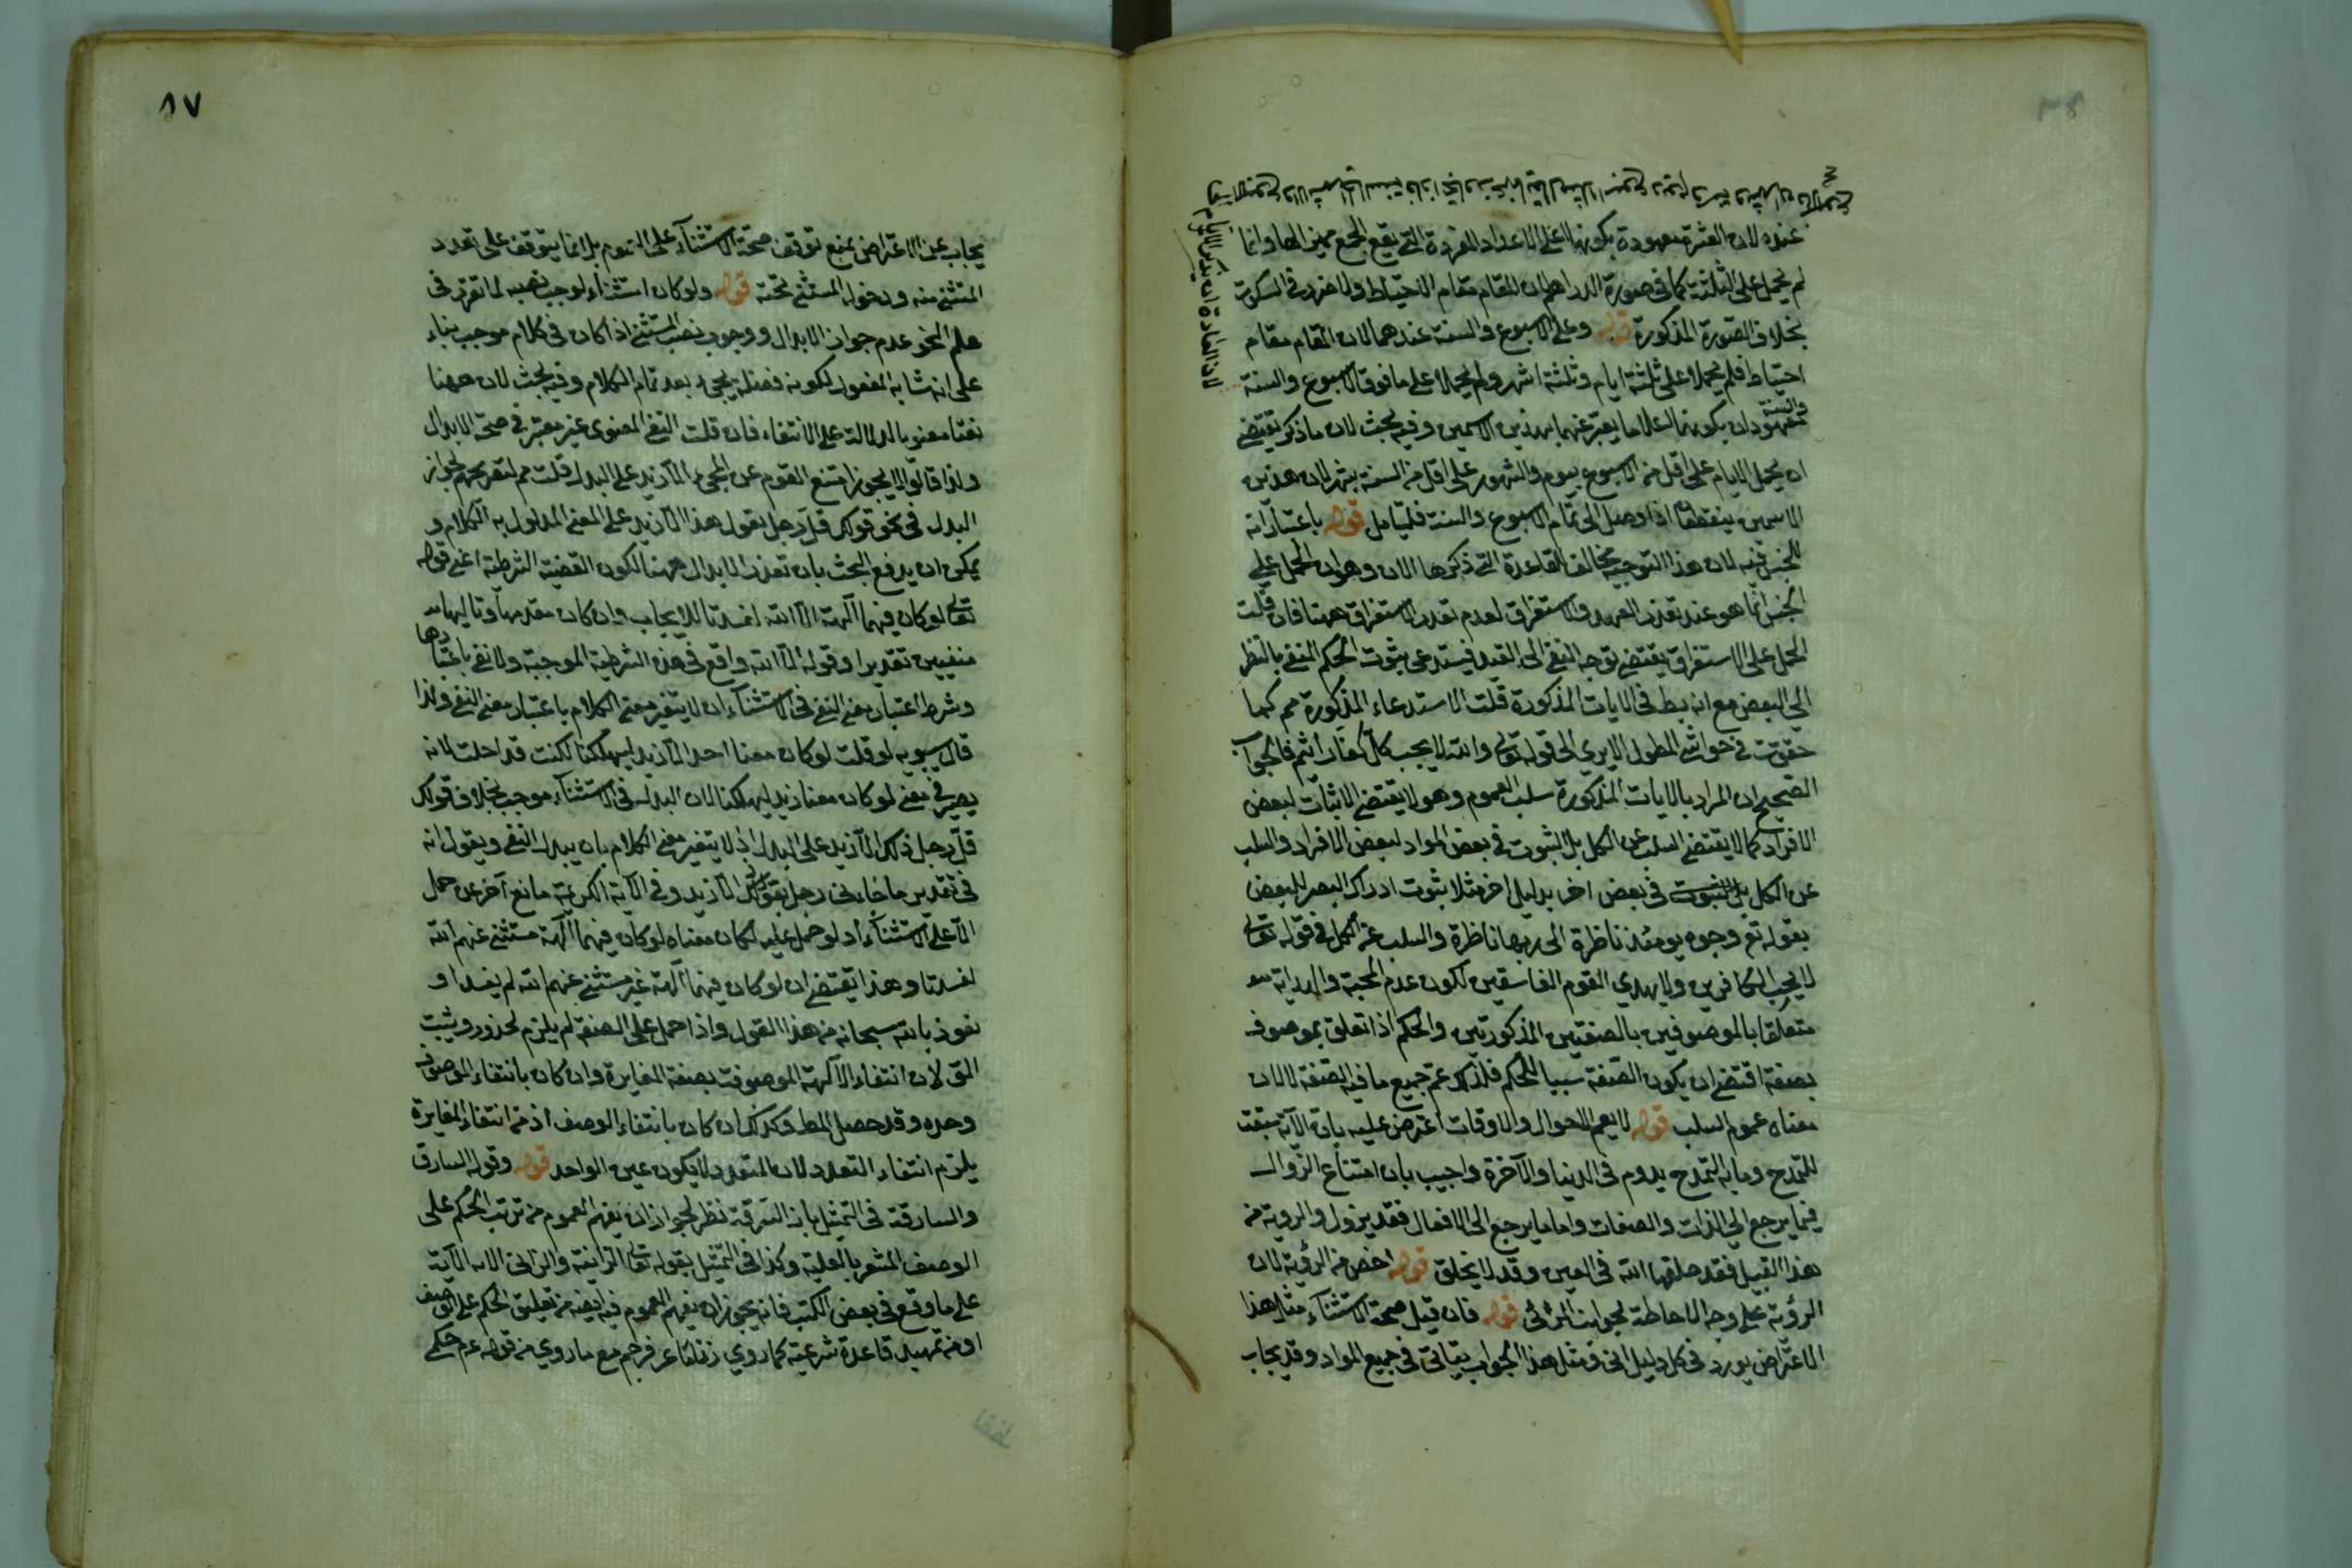 عنده لان العشرة معهودة بكونها اعلى الاعداد المفردة التي يقع الجمع مميزا لها وانما
لم يحمل على الثلثة كما في صورة الدراهم لان المقام مقام الاحتياط ولا ضرر في السكوت
بخلاف الصورة المذكورة قوله وعلى الاسبوع والسنة عندهما لان المقام مقام
احتياط فلم يحملا على ثلثة ايام وثلثة اشهر ولم يحملا على ما فوق الاسبوع والسنة
معهودان بكونهما يعبر عنهما بهذين الاسمين وفيه بحث لان ما ذكر يقتضي
ان يحمل الايام على اقل من الاسبوع بيوم والشهور على اقل من السنة بشهر لان هذين
الاسمين ينقطعان اذا وصل الى تمام الاسبوع والسنة فليتامل قوله باعتبار انه
للجنس فيه لان هذا التوجيه مخالف للقاعدة التي ذكرها الان وهو ان الحمل على
الجنس انما هو عند تعذر العهد والاستغراق لعدم تعذر الاستغراق ههنا فان قلت
الحمل على الاستغراق يقتضي توجه النفي الى القيد فيستدعي ثبوت الحكم المنفي بالنظر
الى البعض مع انه بط في الايات المذكورة قلت الاستدعاء المذكورة مم كما
حققت في حواشي المطول الا يرى الى قوله تعالى والله لا يحب كل كفار اثيم فالجواب
الصحيح ان المراد بالايات المذكورة سلب العموم وهو لا يقتضي الاثبات لبعض
الافراد كما لا يقتضي السلب عن الكل بل الثبوت في بعض المواد لبعض الافراد والسلب
عن الكل في بعض اخر بدليل اخر مثلا ثبوت ادراك البصر للبعض
بقوله تع وجوه يومئذ ناظرة الى ربها ناظرة والسلب عن الكل في قوله تعالى
لا يحب الكافرين ولا يهدي القوم الفاسقين لكون عدم المحبة والهداية
متعلقا بالموصوفين بالصفتين المذكورتين والحكم اذا تعلق بموصوف
بصفة اقتضى ان يكون الصفة سببا للحكم فلذلك عم جميع ما فيه الصفة لا لان
معناه عموم السلب قوله لا يعم الاحوال والاوقات اعترض عليه بان الآية سيقت
للتمدح وما به التمدح يدوم في الدنيا والآخرة واجيب بان امتناع الزوال
فيما يرجع الى الذات والصفات واما ما يرجع الى الافعال فقد يزول والرؤية من
هذا القبيل فقد خلقها الله في العين وقد لا يخلق قوله اخص من الرؤية لان
الرؤية على وجه الاحاطة بجوانب المرئي قوله فان قيل صحة الاستثناء مثل هذا
الاعتراض يورد في كل دليل اني ومثل هذا الجواب يتاتى في جميع المواد وقد يجاب
لان العادة ان يذكر الايام
٨٧
يجاب عن الاعتراض بمنع توقف صحة الاستثناء على العموم بل انما يتوقف على تعدد
المستثنى منه ودخول المستثنى تحته قوله ولو كان استثناء لوجب نصبه لما تقرر في
علم النحو عدم جواز الابدال ووجوب نصب المستثنى اذا كان في كلام موجب بناء
على انه شابه المفعول لكونه فضلة يجيء بعد تمام الكلام وفيه بحث لان ههنا
نفيا معنويا لدلالة على الانتفاء فان قلت النفي المعنوي غير معتبر في صحة الابدال
ولذا قالوا لا يجوز امتنع القوم عن المجيء الا زيد على البدل قلت مم لتصريحهم بجواز
البدل في نحو قولك قل رجل يقول هذا الا زيد على المعنى المدلول به الكلام و
يمكن ان يدفع البحث بان تعذر الابدال ههنا لكون القضية الشرطية اعني قوله
تعالى لو كان فيهما آلهة الا الله لفسدتا للايجاب وان كان مقدمها وتاليها
منفيين تقديرا وقوله الا الله واقع في هذه الشرطية الموجبة ولا نفي باعتبارها
وشرط اعتبار معنى النفي في الاستثناء ان لا يتغير معنى الكلام باعتبار معنى النفي ولذا
قال سيبويه لو قلت لو كان معنا احد الا زيد ليهلكنا لكنت قد احلت لانه
يصير في معنى لو كان معنا زيد ليهلكنا لان البدل في الاستثناء موجب بخلاف قولك
قل رجل ذلك الا زيد على البدل اذ لا يتغير معنى الكلام بان يبدل النفي ويقول انه
في تقدير ما جاءني رجل يقول ذلك الا زيد وفي الآية الكريمة مانع آخر عن حمل
الا على الاستثناء اذ لو حمل عليه لكان معناه لو كان فيهما آلهة مستثنى عنهم الله
لفسدتا وهذا يقتضي ان لو كان فيهما آلهة غير مستثنى عنهم الله لم يفسدا و
نعوذ بالله سبحانه من هذا القول واذا حمل على الصفة لم يلزم محذور ويثبت
المق لان انتفاء الآلهة الموصوفة بصفة المغايرة وان كان بانتفاء الموصوف
وحده وقد حصل المط وكذلك ان كان بانتفاء الوصف اذ من انتفاء المغايرة
يلزم انتفاء التعدد لان المتعدد لا يكون عين الواحد قوله وقوله السارق
والسارقة في التمثيل بآية السرقة نظر لجواز ان يفهم العموم من ترتب الحكم على
الوصف المشعر بالعلية وكذا في التمثيل بقوله تعالى الزانية والزاني الآية
على ما وقع في بعض الكتب فانه يجوز ان يفهم العموم فيه ايضا من تعليق الحكم على الوصف
او من تمهيد قاعدة شرعية كما روي زنا ماعز فرجم مع ما روي من قوله عم حكمي